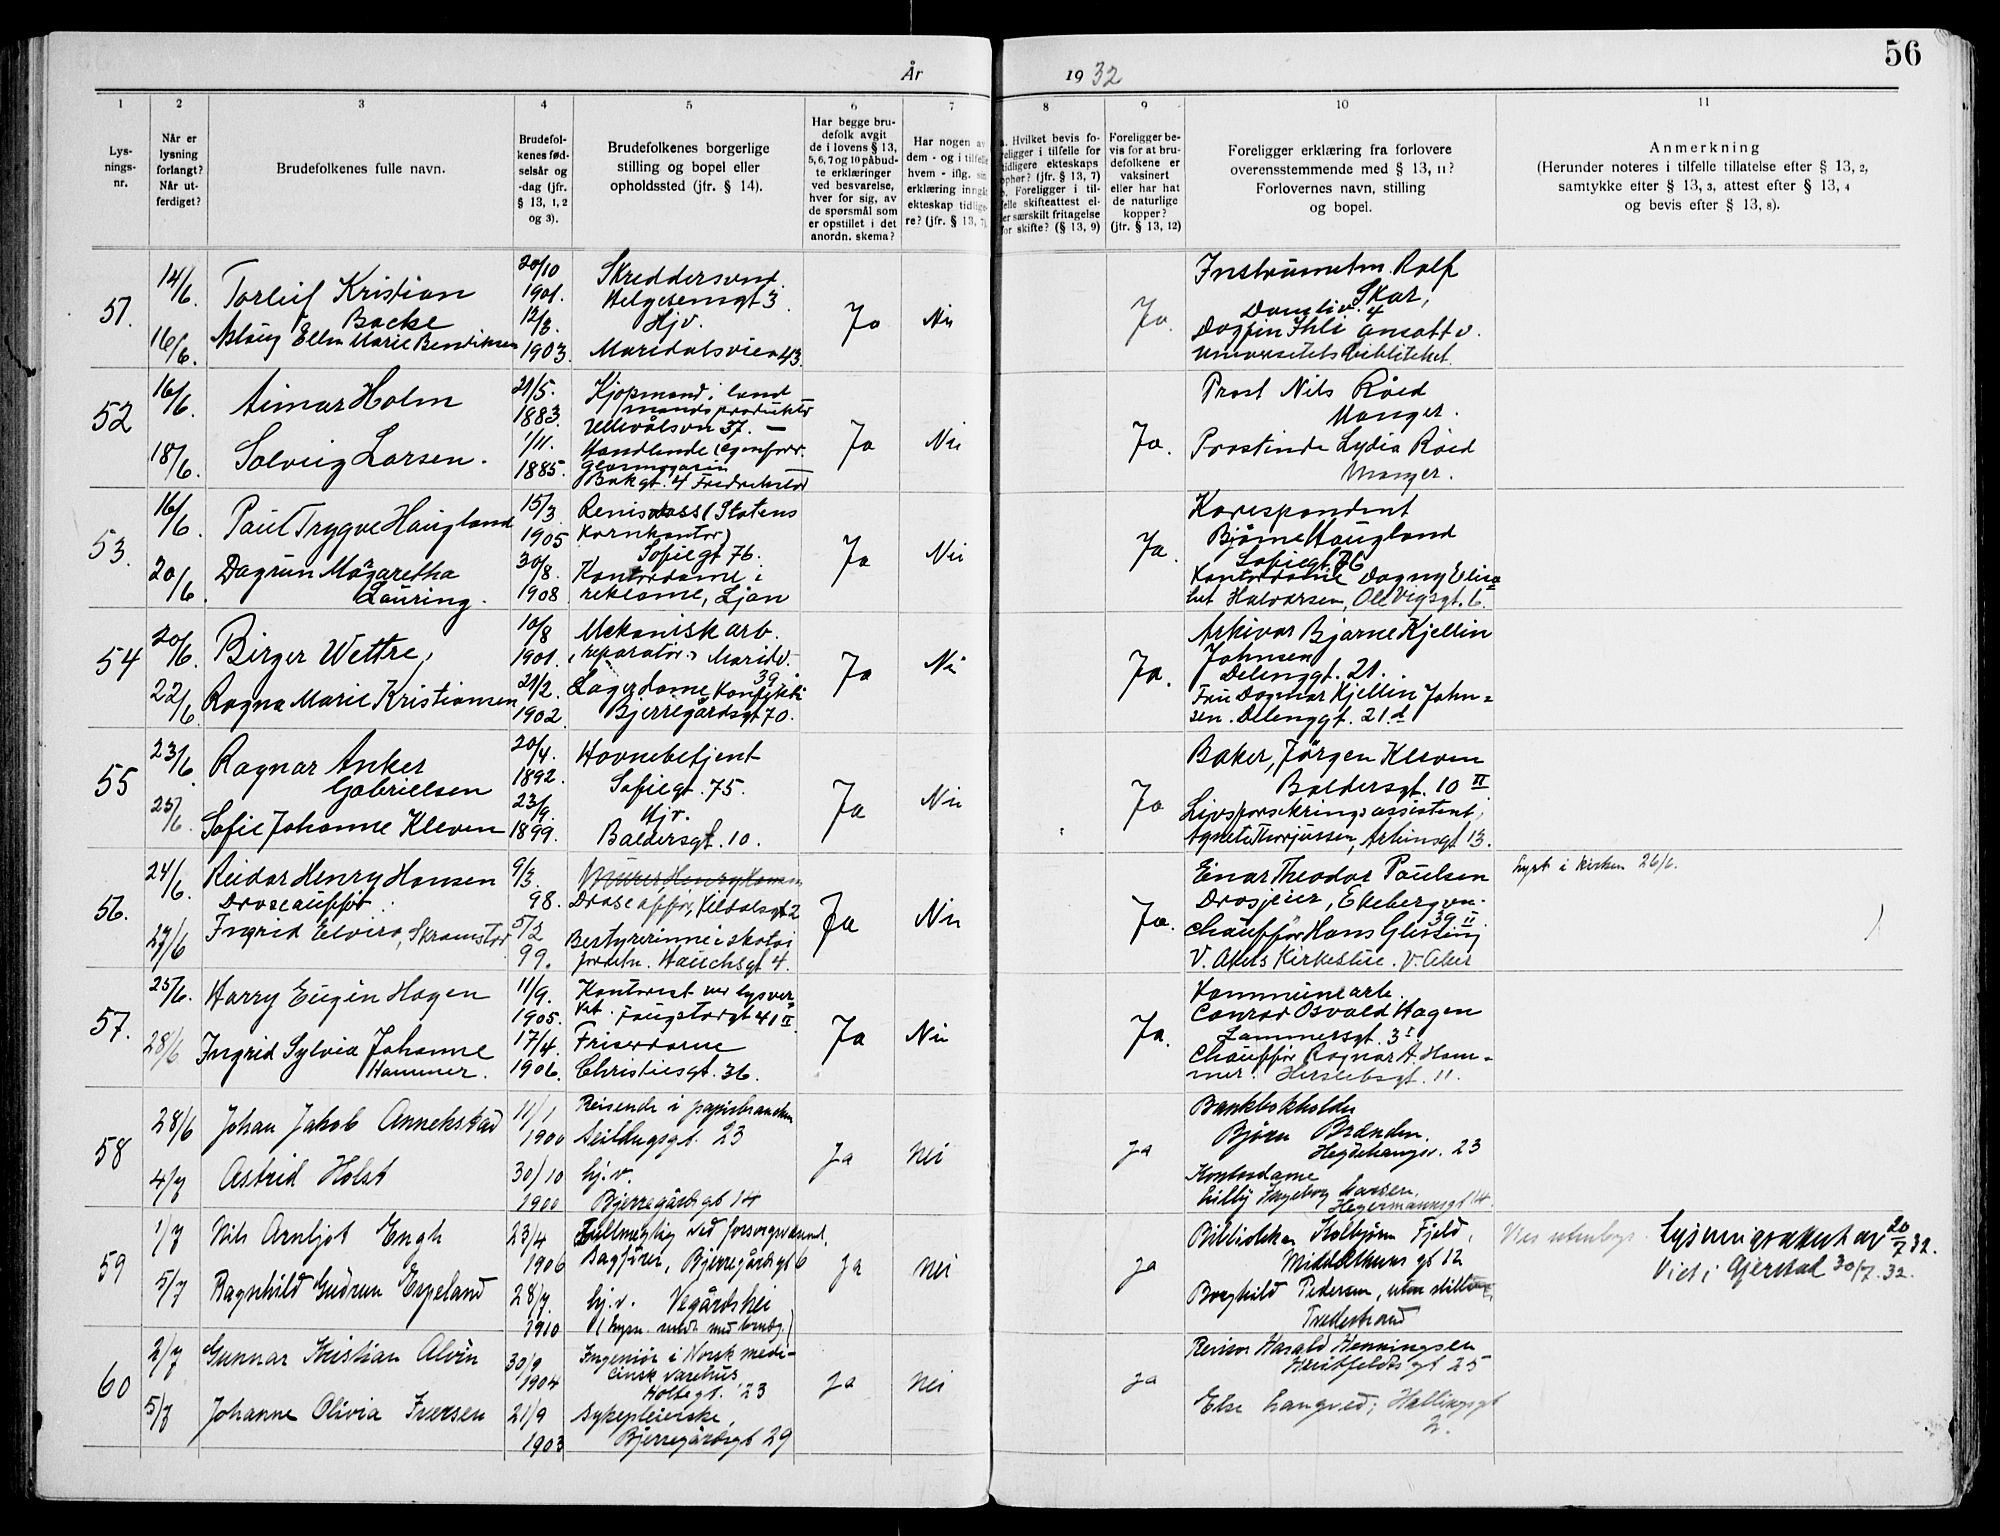 56
År 1932
1 2 3 4 5 6 7 8 9 10 11
Lys-
nings-
nr.
Når er
lysning
forlangt?
Når ut-
ferdiget?
Brudefolkenes fulle navn.
Brudefol-
kenes fød-
selsår og
-dag (jfr.
§ 13, 1, 2
og 3).
Brudefolkenes borgerlige
stilling og bopel eller
opholdssted (jfr. § 14).
Har begge bru-
defolk avgit
de i lovens § 13,
5, 6, 7 og 10 påbud-
te erklæringer
ved besvarelse,
hver for sig, av
de spørsmål som
er opstillet i det
anordn. skema?
Har nogen av
dem - og i tilfelle
hvem - iflg. sin
erklæring inngik
ekteskap tidlige-
re? (jfr. § 13, 7)
a. Hvilket bevis fo-
religger i tilfelle for
tidligere ekteskaps
ophør? (jfr. § 13, 7)
b. Foreligger i til-
felle skifteattest el-
ler særskilt fritagelse
for skifte? (§ 13, 9)
Foreligger be-
vis for at bru-
defolkene er
vaksinert
eller har hat
de naturlige
kopper?
(jfr. § 13, 12)
Foreligger erklæring fra forlovere
overensstemmende med § 13, 11?
Forlovernes navn, stilling
og bopel.
Anmerkning
(Herunder noteres i tilfelle tillatelse efter § 13, 2,
samtykke efter § 13, 3, attest efter § 13, 4
og bevis efter § 13, 8).
51.
14/6.
16/6.
Torleif Kristian
Backe
Aslaug Ellen Marie Bendiksen
20/10
1901.
12/3.
1903.
Skreddersvend.
Helgesensgt 3
Hjv.
Maridalsveien 43.
Ja
Nei
Ja.
Instrumentm. Rolf
Skar,
4
Dagfin Ihle ansatt v.
Universitetsbiblioteket.
52
16/6.
18/6.
Aimar Holm
Solveig Larsen.
21/5.
1883.
1/11.
1885.
Kjøpmand i land
mandsprodukter
Ullevålsvn 37.
Handlende
Glasmagasin
4 Fredrikstad
Ja
Nei
Ja.
Prost Nils Røed
Manger.
Prostinde Lydia Røed
Manger.
53.
16/6.
20/6.
Paul Trygve Haugland
Dagrun Margaretha
Lauring.
15/3.
1905
30/8.
1908.
(Statens
Kornkontor)
Sofiegt 76.
Kontordame i
reklame, Ljan
Ja
Nei
Ja.
Korespondent
Bjarne Haugland
Sofiegt 76
Kontordame Dagny Elisa=
bet Halvorsen, Ole Vigsgt. 6.
54
20/6.
22/6
Birger Wettre,
Ragna Marie Kristiansen
10/8
1901.
21/2.
1902.
Mekanisk arb.
(reparatør.) Maridv.
39
Lagerdame, Konfeksj.
Bjerregårdsgt 70.
Ja
Nei
Ja.
Arkivar Bjarne Kjellin
Johnsen
Delenggt. 21.
Fru Dagmar Kjellin John=
sen. Delenggt. 21.d
55
23/6.
25/6.
Ragnar Anker
Gabrielsen
Sofie Johanne Kleven
20/4.
1892.
23/9.
1899.
Havnebetjent
Sofiegt. 75.
Hjv.
Baldersgt. 10.
Ja
Nei
Ja
Baker, Jørgen Kleven
Baldersgt. 10 II
Livsforsikringsassistent,
Agnete Thorjussen, Arbinsgt 13.
56.
24/6.
27/6
Reidar Henry Hansen
Ingrid Elvira, Skramstad
9/3.
98.
5/2
99.
2
Bestyrerinne i skotøi
forretn. Hauchsgt 4.
Ja
Nei
Ja.
Einar Theodor Paulsen
Drosjeier, Ekebergvn.
39 II
Chauffør Hans Glissing
V. Akers Kirkestue. V. Aker
Lyst i kirken 26/6.
57.
25/6.
28/6
Harry Eugen Hagen
Ingrid Sylvia Johanne
Hammer.
11/9.
1905.
17/4.
1906.
Kontorist ved lysver=
ket. Fougstadgt 41 II
Friserdame
Christiesgt. 36.
Ja
Nei
Ja.
Kommunearb.
Conrad Osvald Hagen
Lammersgt. 3 I
Chauffør Ragnar A. Ham=
mer. Herslebsgt. 11.
58
28/6
4/7
Johan Jakob Annekstad
Astrid Holst
11/1
1900
30/10
1900
Reisende i papirbranchen
Seilduksgt. 23
hj.v.
Bjerregårdsgt 14
Ja
Nei
Ja
Bankbokholder
Bjørn Brænden.
Hegdehaugsv. 23
Kontordame
Lilly Ingeborg Larsen.
Hegermannsgt 14.
59
1/7
5/7
Nils Arnljot Engh
Ragnhild Gudrun Espeland
23/4
1906
28/7.
1910
Fullmegtig ved forsorgsvæsenet,
Sagfører, Bjerregårdsgt 6
hj.v. Vegårdshei
Ja
Nei
Ja
Bibliotekar Kolbjørn Fjeld,
Middelthuns gt 12
Borghild Pedersen, uten stilling,
Tvedestrand
Vies utenbys.
Lysningsattest av 20/7 32.
Viet i Gjerstad 30/7. 32.
60
2/7
5/7
Gunnar Kristian Alvin
Johanne Olivia Iversen
30/9
1904
21/9
1903
Ingeniør i Norsk medi-
cinsk varehus
Holtegt. 23
Sykepleierske,
Bjerregårdsgt 29
Ja
Nei
Ja
Revisor Harald Henningsen
Hertzfeldts gt 25
Else Langved; Hallingsgt
2.